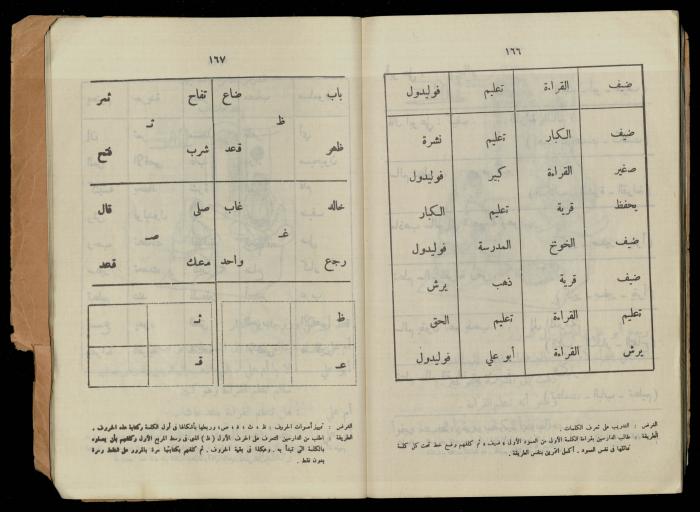 ١٦٦
ضيف القراءة تعليم فوليدول
ضيف الكبار تعليم نشرة
صغير القراءة كبير فوليدول
يحفظ قرية تعليم الكبار
ضيف الخوخ المدرسة فوليدول
ضيف قرية ذهب يرش
تعليم القراءة تعليم الحق
يرش القراءة أبو علي فوليدول
الغرض : التدريب على تعرف الكلمات .
الطريقة : طالب الدارسين بقراءة الكلمة الأولى من العمود الأول ، ضيف ، ثم كلفهم وضع خط تحت كل كلمة
تماثلها فى نفس العمود . أكمل التمرين بنفس الطريقة .
١٦٧
باب ضاع تفاح ثمر
ظ ثـ
ظهر قعد شرب فتح
خاله غاب صلى قال
غـ صـ
رجع واحد معك قعد
ظ ثـ
عـ قـ
الغرض : تمييز أصوات الحروف : ظ ، ث ، غ ، ص ، وربطها بأشكالها فى أول الكلمة وكتابة هذه الحروف .
الطريقة : اطلب من الدارسين التعرف على الحرف الأول ( ظ ) الذى فى وسط المربع الأول وكلفهم بأن يصلوه
بالكلمة التى تبدأ به . وهكذا فى بقية الحروف . ثم كلفهم بكتابتها مرة بالمرور على النقط ومرة
بدون نقط .